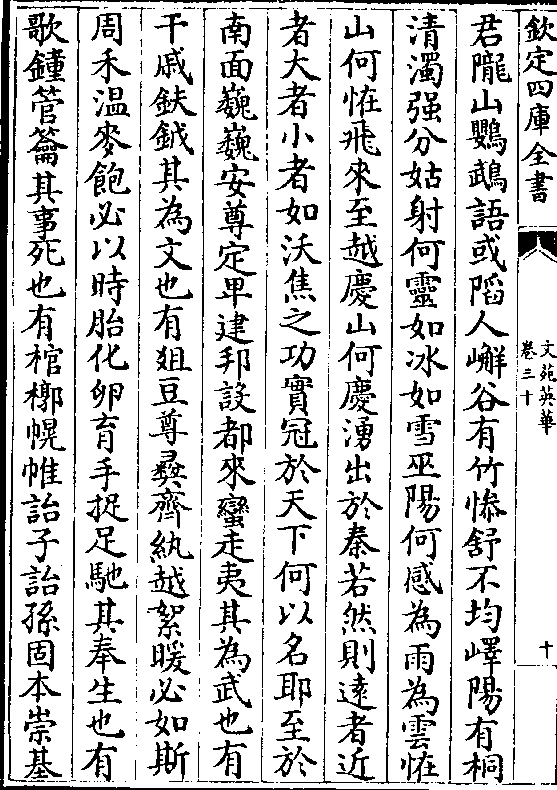 欽定四庫全書
文苑英華
卷三十
十
君隴山鸚鵡語或蹈人嶰谷有竹慘舒不均嶧陽有桐
清濁强分姑射何靈如冰如雪巫陽何感為雨為雲恠
山何恠飛來至越慶山何慶湧出於秦若然則逺者近
者大者小者如沃焦之功實冠於天下何以名耶至於
南面巍巍安尊定卑建邦設都來蠻走夷其為武也有
干戚鈇鉞其為文也有爼豆尊彞齊紈越絮暖必如斯
周禾温麥飽必以時胎化卵育手捉足馳其奉生也有
歌鐘管籥其事死也有棺槨幌帷詒子詒孫固本崇基